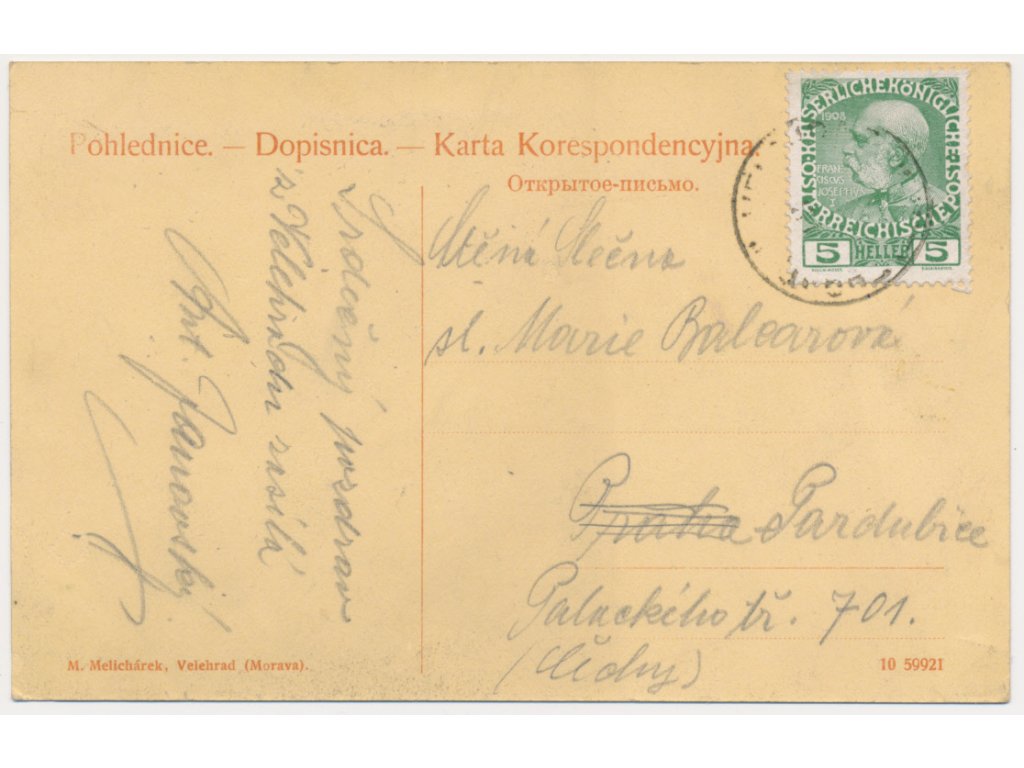 Pohlednice. — Dopisnica. — Karta Korespondencyjna.
Открытое-письмо.
KAISERLICHE KÖNIGLICHE ÖSTERREICHISCHE POST
1908
FRAN
CISCVS
JOSEPHVS
I
5 HELLER 5
Srdečný pozdrav
z Velehradu zasílá
Ant. Janovský
Slečna
sl. Marie Balcarová
Praha Pardubice
Palackého tř. 701.
(Čechy)
M. Melichárek, Velehrad (Morava).
10 59921